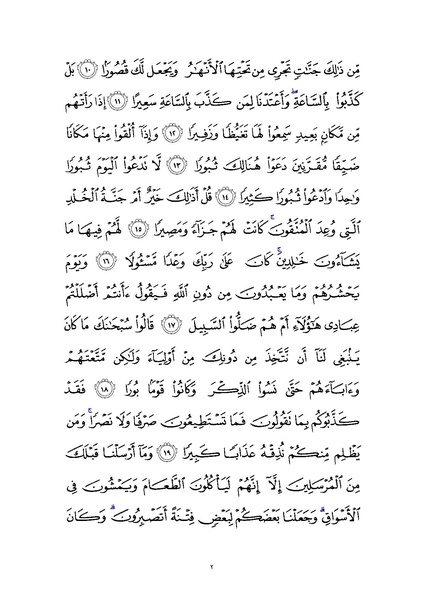 مِّن ذَٰلِكَ جَنَّٰتٍ تَجْرِى مِن تَحْتِهَا ٱلْأَنْهَٰرُ وَيَجْعَل لَّكَ قُصُورًۢا ١٠ بَلْ
كَذَّبُوا۟ بِٱلسَّاعَةِ ۖ وَأَعْتَدْنَا لِمَن كَذَّبَ بِٱلسَّاعَةِ سَعِيرًا ١١ إِذَا رَأَتْهُم
مِّن مَّكَانٍۭ بَعِيدٍ سَمِعُوا۟ لَهَا تَغَيُّظًا وَزَفِيرًا ١٢ وَإِذَآ أُلْقُوا۟ مِنْهَا مَكَانًا
ضَيِّقًا مُّقَرَّنِينَ دَعَوْا۟ هُنَالِكَ ثُبُورًا ١٣ لَّا تَدْعُوا۟ ٱلْيَوْمَ ثُبُورًا
وَٰحِدًا وَٱدْعُوا۟ ثُبُورًا كَثِيرًا ١٤ قُلْ أَذَٰلِكَ خَيْرٌ أَمْ جَنَّةُ ٱلْخُلْدِ
ٱلَّتِى وُعِدَ ٱلْمُتَّقُونَ ۚ كَانَتْ لَهُمْ جَزَآءً وَمَصِيرًا ١٥ لَّهُمْ فِيهَا مَا
يَشَآءُونَ خَٰلِدِينَ ۚ كَانَ عَلَىٰ رَبِّكَ وَعْدًا مَّسْـُٔولًا ١٦ وَيَوْمَ
يَحْشُرُهُمْ وَمَا يَعْبُدُونَ مِن دُونِ ٱللَّهِ فَيَقُولُ ءَأَنتُمْ أَضْلَلْتُمْ
عِبَادِى هَٰٓؤُلَآءِ أَمْ هُمْ ضَلُّوا۟ ٱلسَّبِيلَ ١٧ قَالُوا۟ سُبْحَٰنَكَ مَا كَانَ
يَنۢبَغِى لَنَآ أَن نَّتَّخِذَ مِن دُونِكَ مِنْ أَوْلِيَآءَ وَلَٰكِن مَّتَّعْتَهُمْ
وَءَابَآءَهُمْ حَتَّىٰ نَسُوا۟ ٱلذِّكْرَ وَكَانُوا۟ قَوْمًۢا بُورًا ١٨ فَقَدْ
كَذَّبُوكُم بِمَا تَقُولُونَ فَمَا تَسْتَطِيعُونَ صَرْفًا وَلَا نَصْرًا ۚ وَمَن
يَظْلِم مِّنكُمْ نُذِقْهُ عَذَابًا كَبِيرًا ١٩ وَمَآ أَرْسَلْنَا قَبْلَكَ
مِنَ ٱلْمُرْسَلِينَ إِلَّآ إِنَّهُمْ لَيَأْكُلُونَ ٱلطَّعَامَ وَيَمْشُونَ فِى
ٱلْأَسْوَاقِ ۗ وَجَعَلْنَا بَعْضَكُمْ لِبَعْضٍ فِتْنَةً أَتَصْبِرُونَ ۗ وَكَانَ
٢